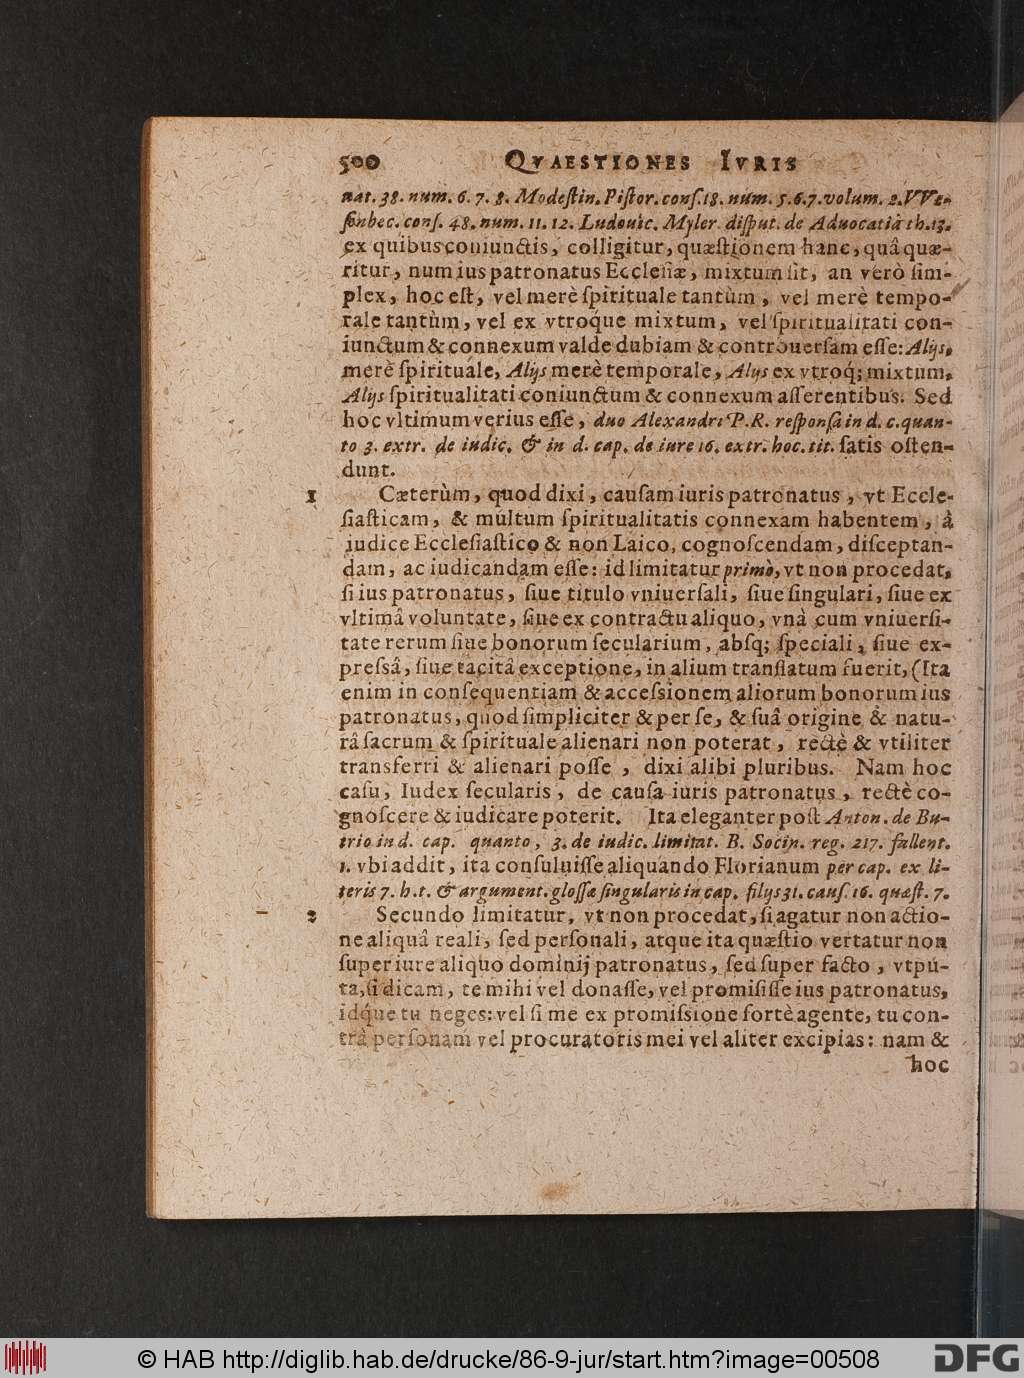 500 QVAESTIONES IVRIS
nat. 38. num. 6. 7. 8. Modeſtin. Piſtor. conſ. 18. num. 5. 6. 7. volum. 2. VVe-
ſenbec. conſ. 48. num. 11. 12. Ludouic. Myler. diſput. de Aduocatiâ th. 13.
ex quibus coniunctis, colligitur, quæſtionem hanc, quâ quæ-
ritur, num ius patronatus Eccleſiæ, mixtum ſit, an verò ſim-
plex, hoc eſt, vel merè ſpirituale tantùm, vel merè tempo-
rale tantùm, vel ex vtroque mixtum, vel ſpiritualitati con-
iunctum & connexum valde dubiam & controuerſam eſſe: Alijs,
merè ſpirituale, Alijs merè temporale, Alijs ex vtroq; mixtum,
Alijs ſpiritualitati coniunctum & connexum aſſerentibus. Sed
hoc vltimum verius eſſe, duo Alexandri P. R. reſponſa in d. c. quan-
to 3. extr. de iudic. & in d. cap. de iure 16. extr. hoc. tit. ſatis oſten-
dunt.
1 Cæterùm, quod dixi, cauſam iuris patronatus, vt Eccle-
ſiaſticam, & multum ſpiritualitatis connexam habentem, à
iudice Eccleſiaſtico & non Laico, cognoſcendam, diſceptan-
dam, ac iudicandam eſſe: id limitatur primò, vt non procedat,
ſi ius patronatus, ſiue titulo vniuerſali, ſiue ſingulari, ſiue ex
vltimâ voluntate, ſiue ex contractu aliquo, vnà cum vniuerſi-
tate rerum ſiue bonorum ſecularium, abſq; ſpeciali, ſiue ex-
preſsâ, ſiue tacitâ exceptione, in alium tranſlatum fuerit, (Ita
enim in conſequentiam & acceſsionem aliorum bonorum ius
patronatus, quod ſimpliciter & per ſe, & ſuâ origine & natu-
râ ſacrum & ſpirituale alienari non poterat, rectè & vtiliter
transferri & alienari poſſe, dixi alibi pluribus. Nam hoc
caſu, Iudex ſecularis, de cauſa iuris patronatus, rectè co-
gnoſcere & iudicare poterit. Ita eleganter poſt Anton. de Bu-
trio in d. cap. quanto, 3. de iudic. limitat. B. Socin. reg. 217. fallent.
1. vbi addit, ita conſuluiſſe aliquando Florianum per cap. ex li-
teris 7. h. t. & argument. gloſſæ ſingularis in cap. filijs 31. cauſ. 16. quæſt. 7.
2 Secundo limitatur, vt non procedat, ſi agatur non actio-
ne aliquâ reali, ſed perſonali, atque ita quæſtio vertatur non
ſuper iure aliquo dominij patronatus, ſed ſuper facto, vtpu-
ta, ſi dicam, te mihi vel donaſſe, vel promiſiſſe ius patronatus,
idque tu neges: vel ſi me ex promiſsione fortè agente, tu con-
trà perſonam vel procuratoris mei vel aliter excipias: nam &
hoc
© HAB http://diglib.hab.de/drucke/86-9-jur/start.htm?image=00508
DFG